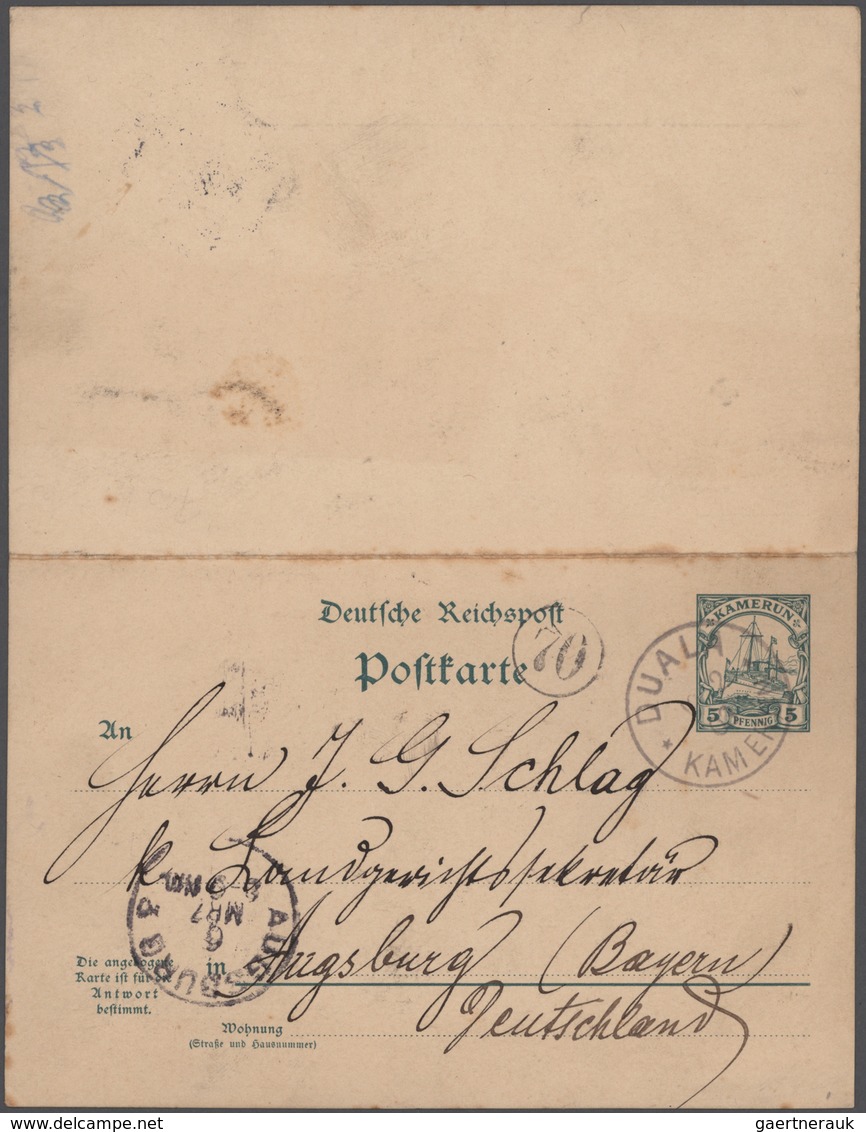 Deutsche Reichspost
Postkarte
70
KAMERUN
5 PFENNIG 5
DUALA
* KAMER
An
Herrn J. G. Schlag
k. Landgerichtssekretär
in Augsburg (Bayern)
Deutschland
AUGSBURG 3
6
MRZ
NM
Die angebogene
Karte ist für
Antwort
bestimmt.
Wohnung
(Straße und Hausnummer)
www.delcampe.net
gaertnerauk